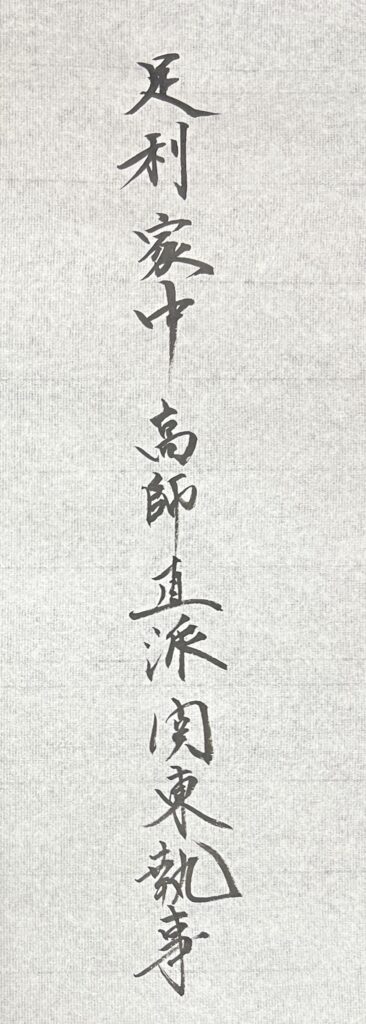 足利家中 高師直派関東執事